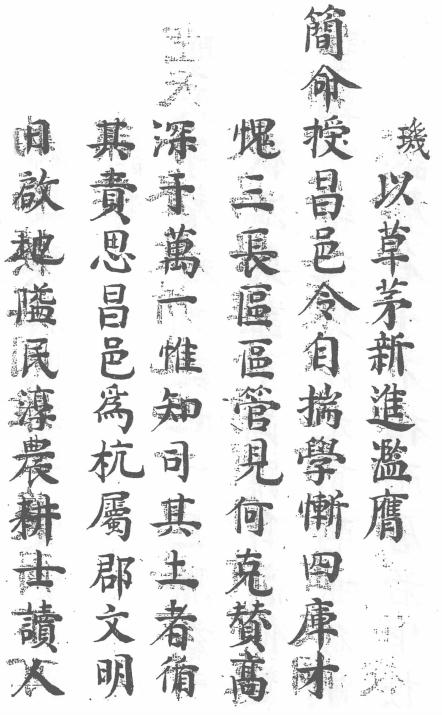 璣以草茅新進濫膺
簡命授昌邑令自揣學慚四庫才
愧三長區區管見何克贊高
深于萬一惟知司其土者脩
其責思昌邑爲杭屬郡文明
日啟地隘民淳農耕士讀人